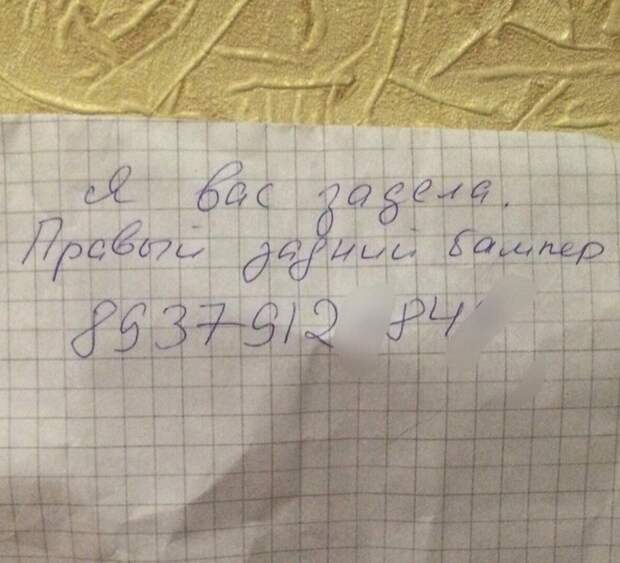 Я вас задела.
Правый задний бампер
8937912 84